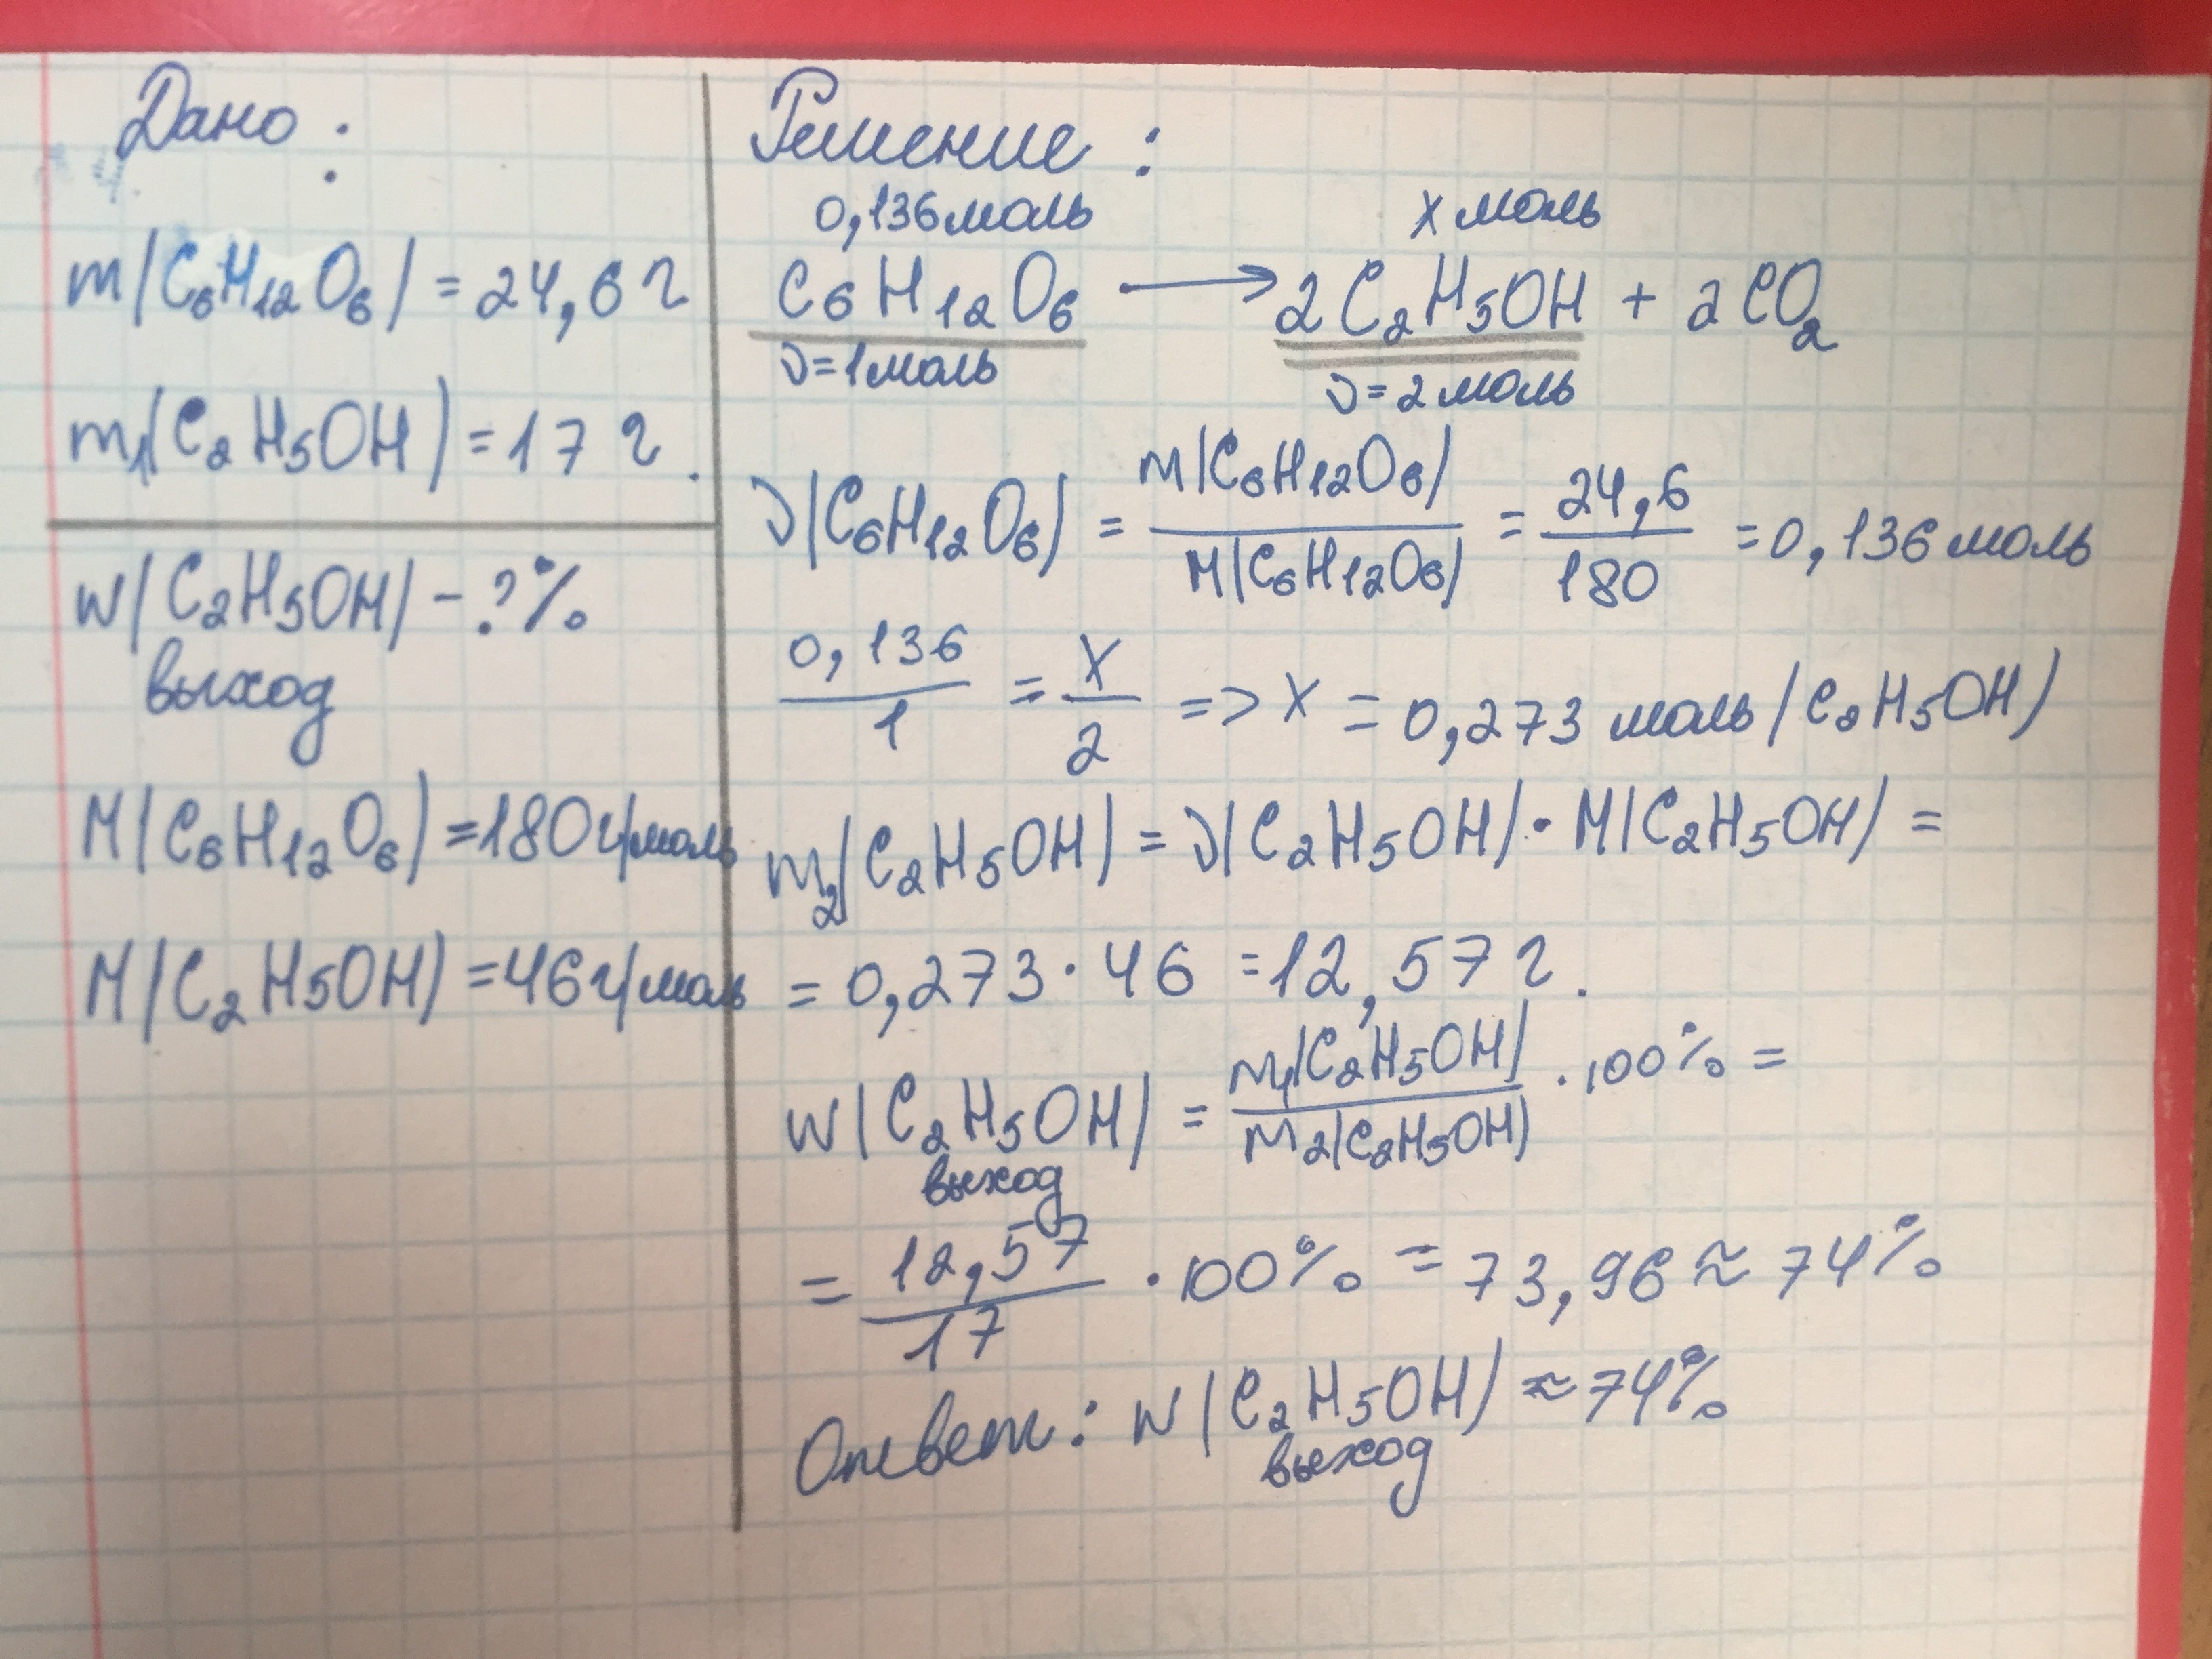 Дано:
m(C₆H₁₂O₆) = 24,6 г
m₁(C₂H₅OH) = 17 г.
w(C₂H₅OH) - ?%
выход
M(C₆H₁₂O₆) = 180 г/моль
M(C₂H₅OH) = 46 г/моль
Решение:
0,136 моль x моль
C₆H₁₂O₆ → 2C₂H₅OH + 2CO₂
ν = 1 моль ν = 2 моль
ν(C₆H₁₂O₆) = m(C₆H₁₂O₆) / M(C₆H₁₂O₆) = 24,6 / 180 = 0,136 моль
0,136 / 1 = x / 2 => x = 0,273 моль (C₂H₅OH)
m₂(C₂H₅OH) = ν(C₂H₅OH) · M(C₂H₅OH) =
= 0,273 · 46 = 12,57 г.
w(C₂H₅OH) = m₁(C₂H₅OH) / m₂(C₂H₅OH) · 100% =
выход
= 12,57 / 17 · 100% = 73,96 ≈ 74%
Ответ: w(C₂H₅OH) ≈ 74%
выход